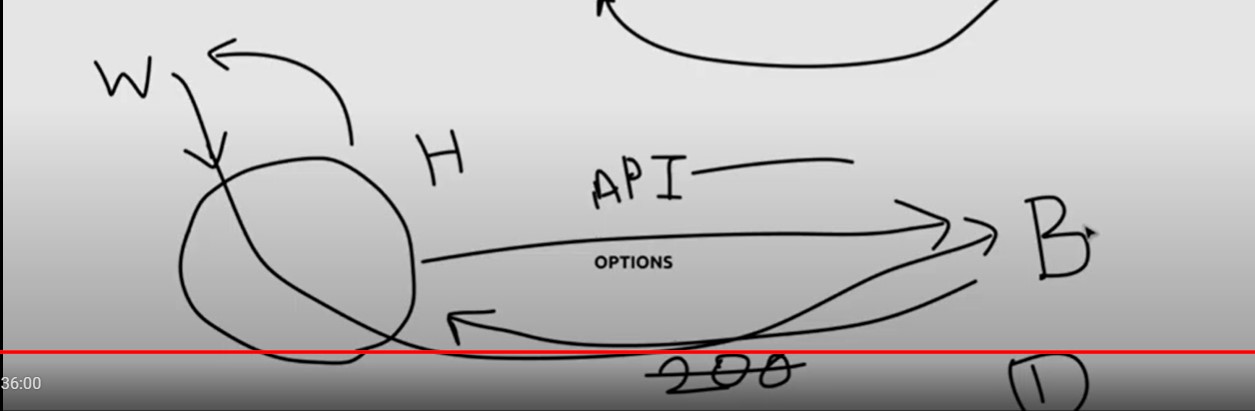 W
H
API
B
OPTIONS
200
1
36:00